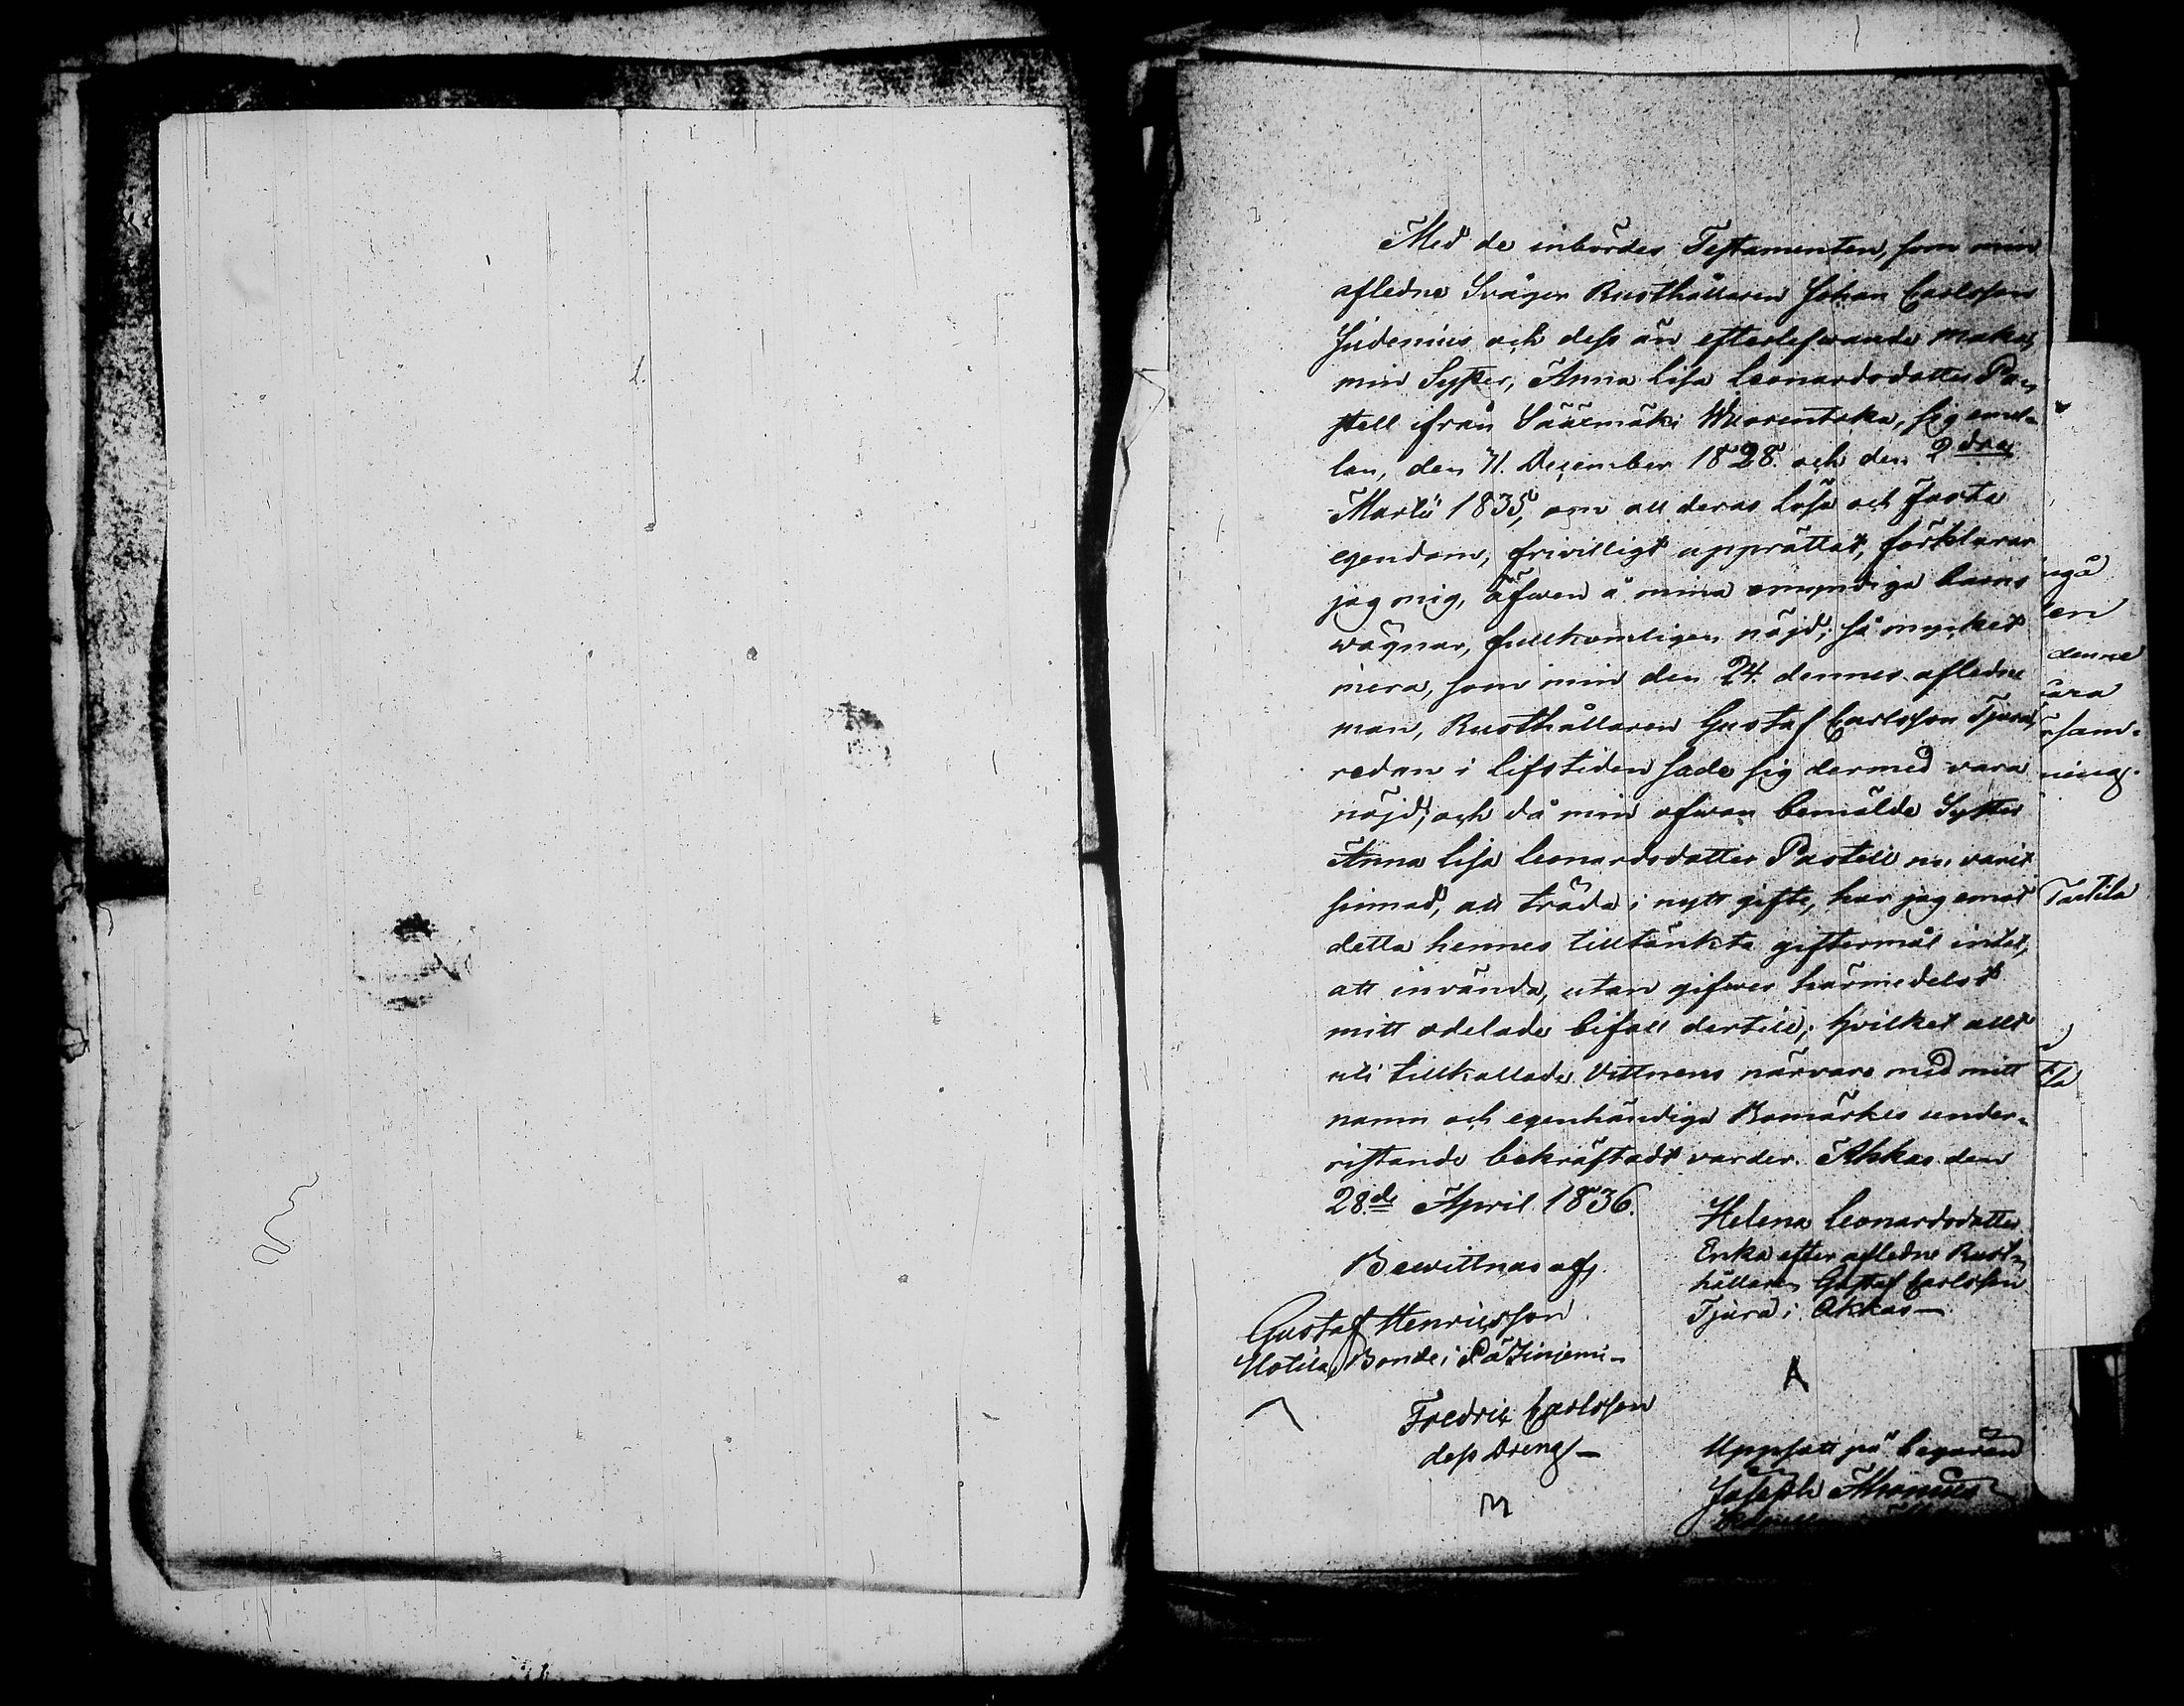 Med de inbördes Testamenten, som min
afledne Svåger Rusthållaren Johan Carlsson
Judenius och dess än efterlefwande maka,
min Syster, Anna Lisa Leonardsdotter Pa-
stell ifrån Sääxmäki Wuorentaka, sig emel-
lan, den 71. December 1828. och den 2dra
Martii 1835, om all deras lösa och fasta
egendom, frivilligt upprättat, förklarar
jag mig, äfwen å mina omyndiga barns
wägnar, fullkomligen nöjd; så mycket
mera, som min den 24. dennes afledne
man, Rusthållaren Gustaf Carlsson Tjura,
redan i lifstiden sade sig dermed vara
nöjd; och då min ofwan bemälde Syster
Anna Lisa Leonardsdotter Pastell nu varit
sinnad, att träda i nytt gifte, har jag emot
detta hennes tilltänkte giftermål intet,
att invända, utan gifwes härmedelst
mitt odelade bifall dertill; hvilket allt
uti tillkallade Vittnens närvaro med mitt
namn och egenhändiga Bomärkes under-
ristande bekräftadt varder. Akkas den
28.de April 1836.
Helena Leonardsdotter
Enka efter afledne Rust-
hållaren Gustaf Carlsson
Tjura i Akkas—
Bewittnas af
Gustaf Henricsson
Uotila, Bonde i
Fredric Carlsson
dess Dreng—
Uppsatt på begäran
Joseph
ngå
en
denne
ara
sam-
ning.
Tartila
la